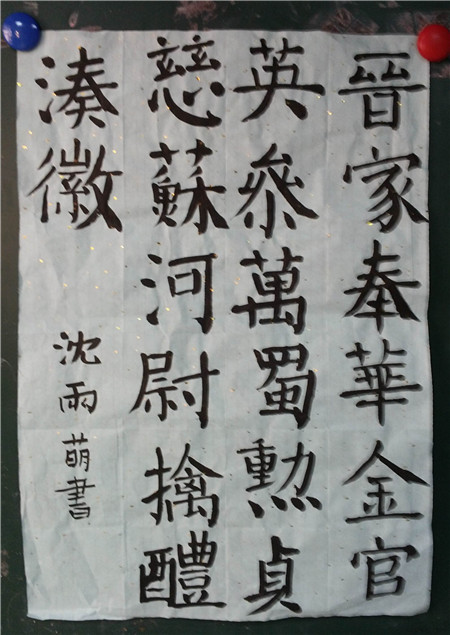 晉家奉華金官
英叅萬蜀勲貞
慈蘇河尉擒醴
湊徽
沈雨萌書